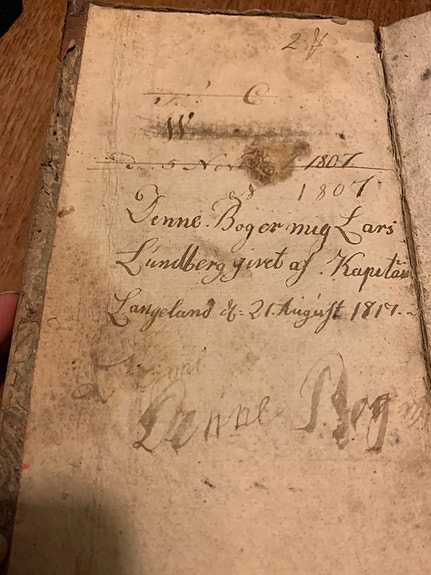 C
W
5 Nov 1807
1807
Denne Bog er mig Lars
Lundberg givet af Kapitan
Langeland d. 21 August 1817.
Denne Bog